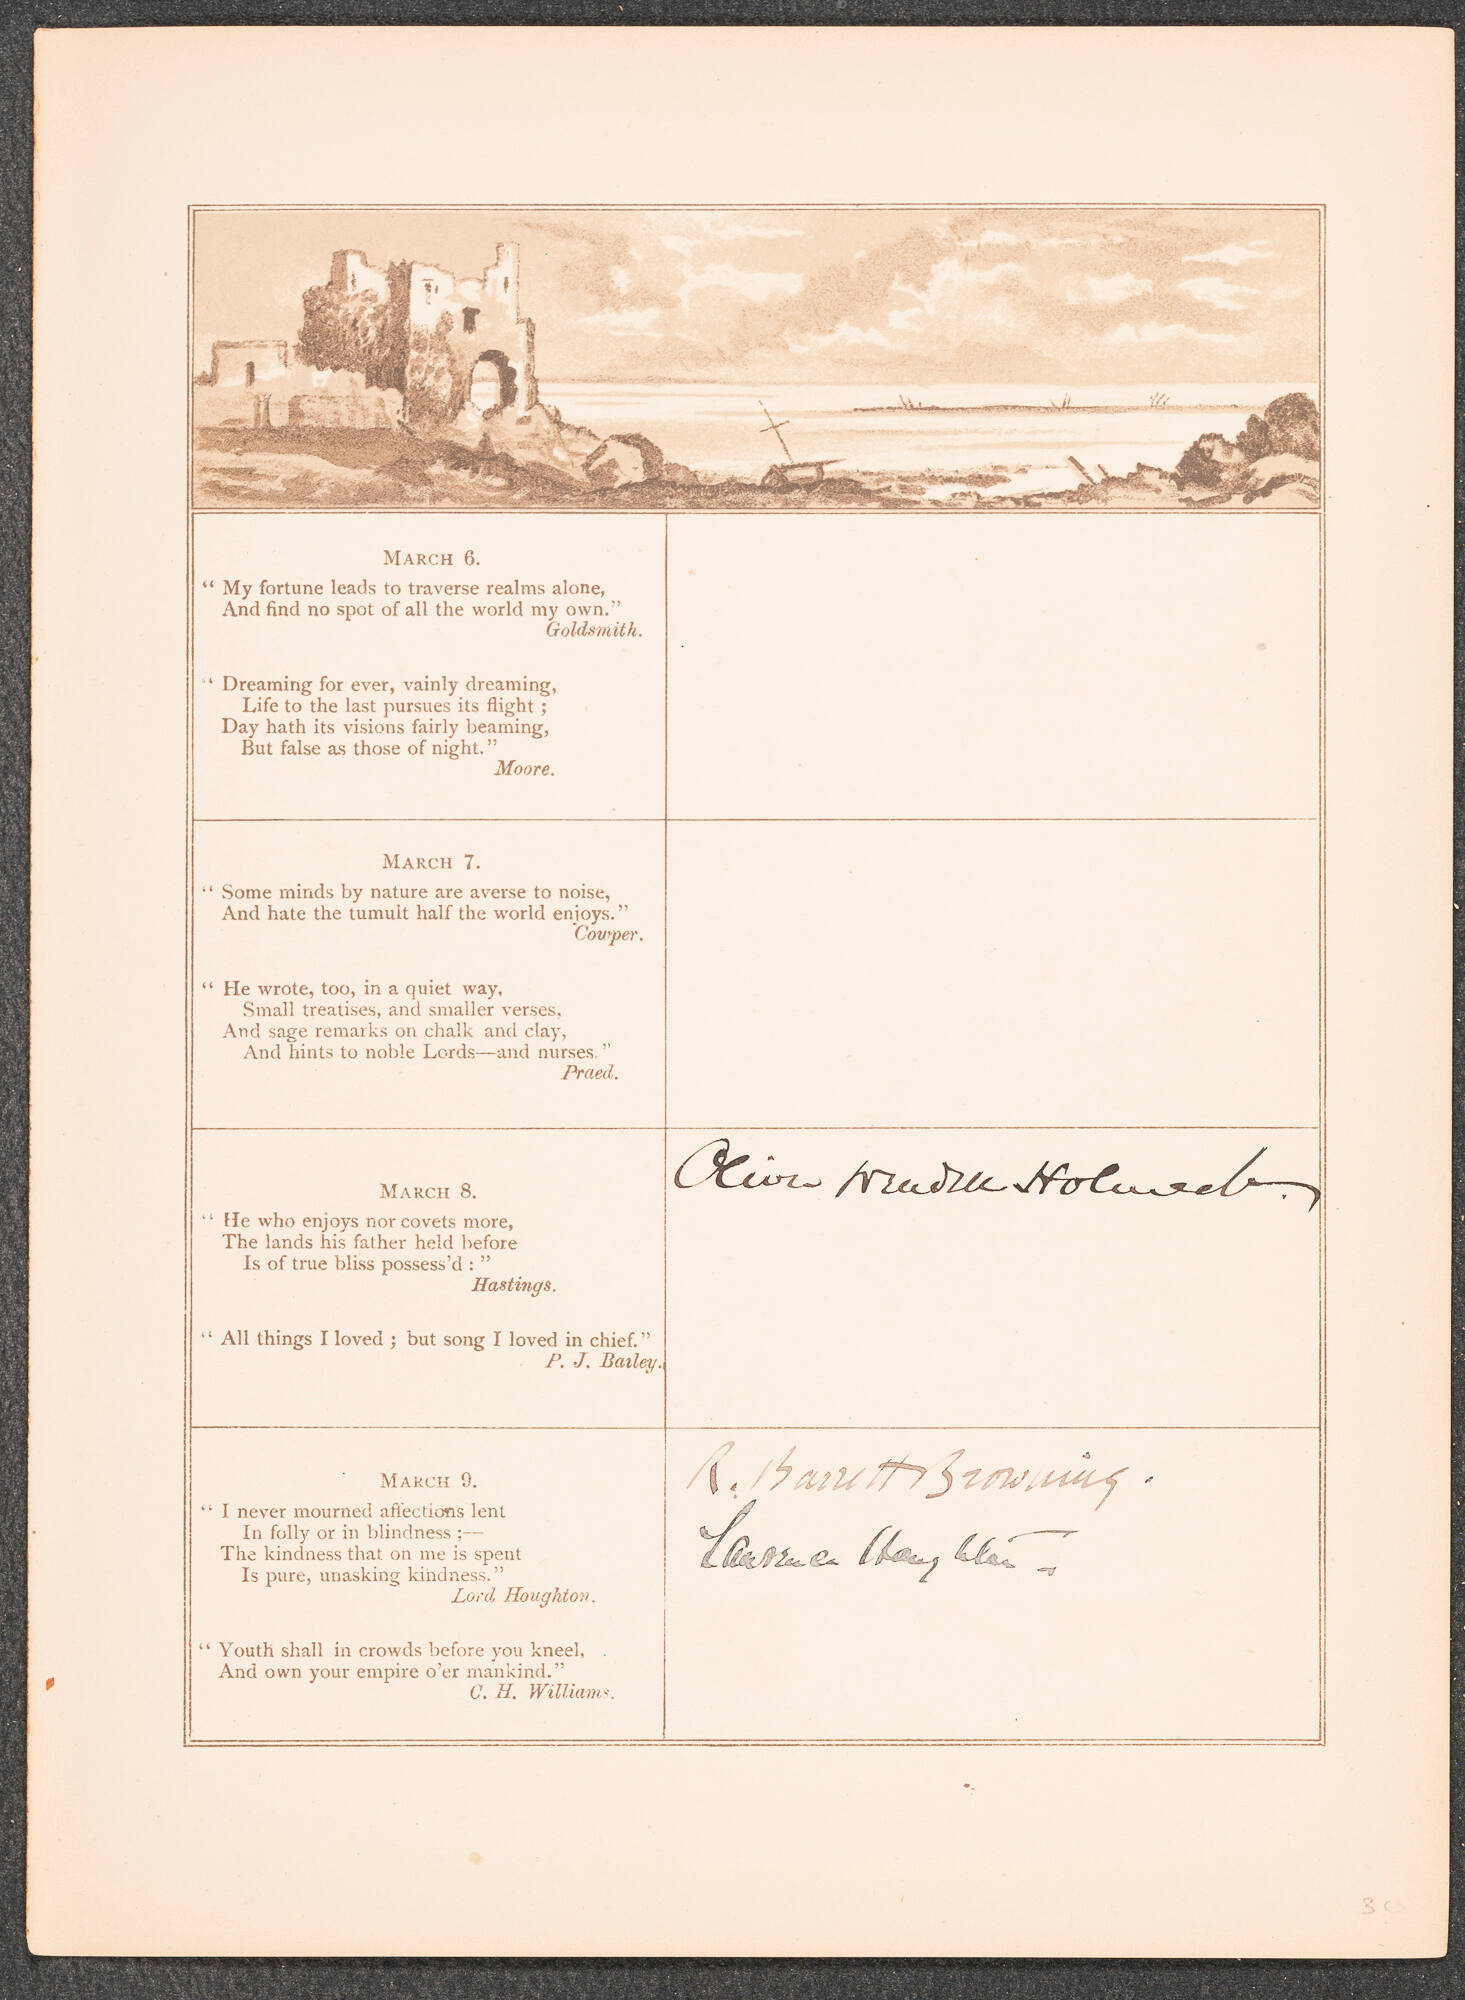 MARCH 6.
“ My fortune leads to traverse realms alone,
And find no spot of all the world my own.”
Goldsmith.
“ Dreaming for ever, vainly dreaming,
Life to the last pursues its flight ;
Day hath its visions fairly beaming,
But false as those of night.”
Moore.
MARCH 7.
“ Some minds by nature are averse to noise,
And hate the tumult half the world enjoys.”
Cowper.
“ He wrote, too, in a quiet way,
Small treatises, and smaller verses,
And sage remarks on chalk and clay,
And hints to noble Lords—and nurses.”
Praed.
MARCH 8.
“ He who enjoys nor covets more,
The lands his father held before
Is of true bliss possess’d : ”
Hastings.
“ All things I loved ; but song I loved in chief.”
P. J. Bailey.
Oliver Wendell Holmes
MARCH 9.
“ I never mourned affections lent
In folly or in blindness ;—
The kindness that on me is spent
Is pure, unasking kindness.”
Lord Houghton.
“ Youth shall in crowds before you kneel,
And own your empire o’er mankind.”
C. H. Williams.
R. Barrett Browning.
Lawrence
30